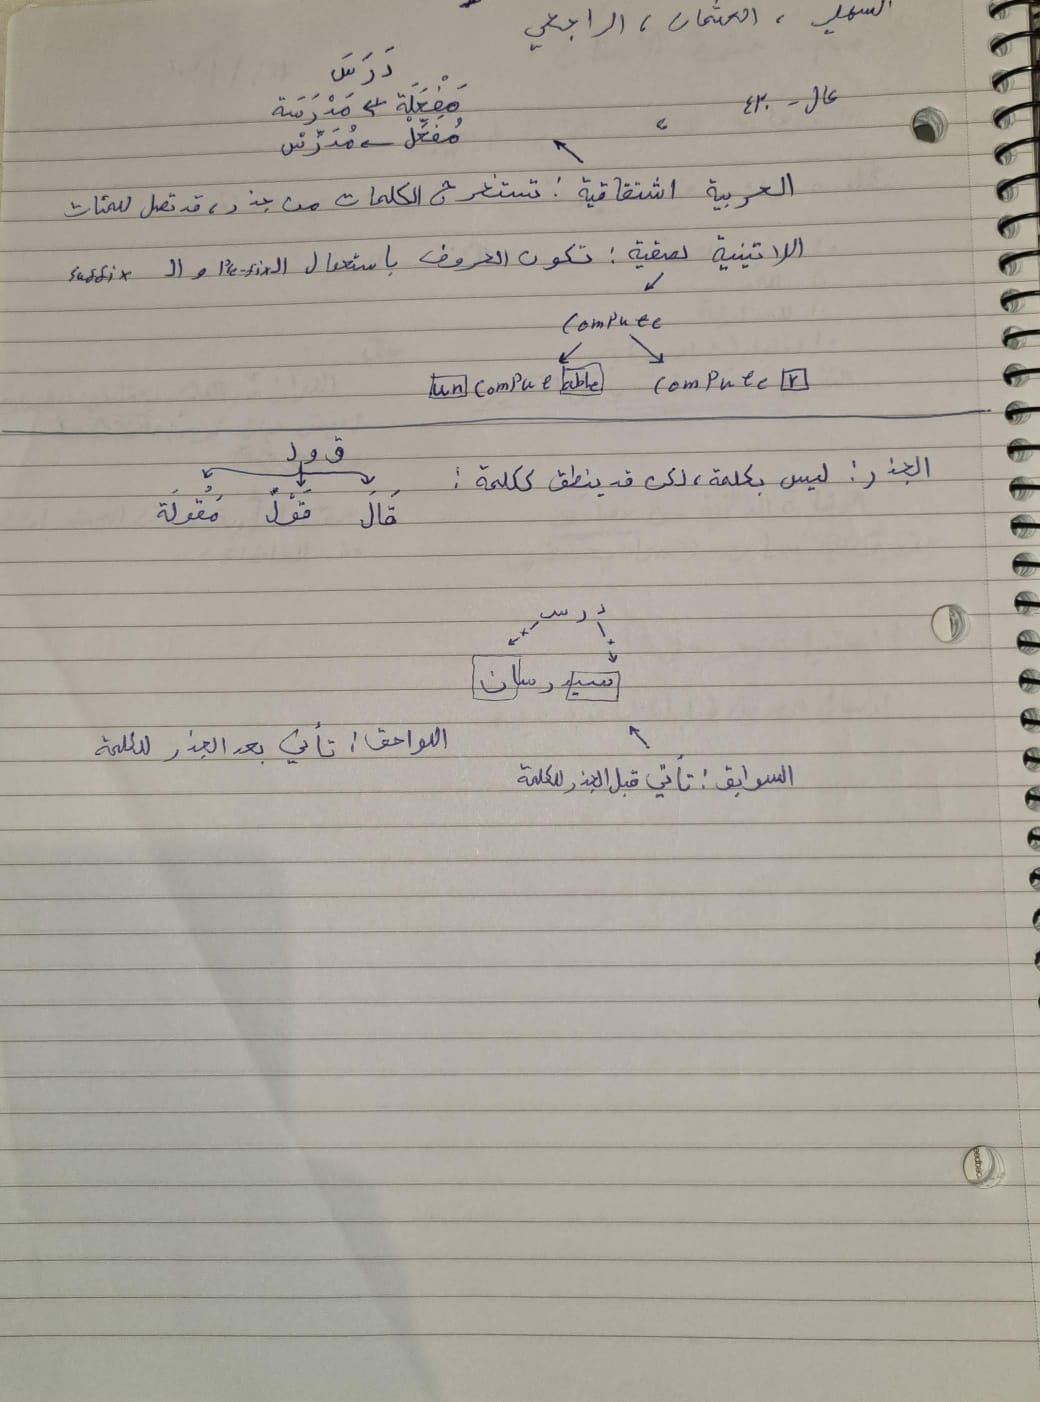 السهلي ، العثمان ، الراجحي
عال - ٤٣٠ ،
دَرَسَ
مَفْعَلَة ← مَدْرَسَة
مُفَعِّلْ ← مُدَرِّس
العربية اشتقاقية : تستخرج الكلمات من جذر ، قد تصل للمئات
اللاتينية لصقية : تكون الحروف باستعمال الـ Pre-fix و الـ suffix
Compute
un compute able Compute r
الجذر : ليس بكلمة ، لكن قد ينطق ككلمة :
ق و ل
قَالَ قَوْلٌ مَقُولَة
د ر س
سيدرسان
اللواحق : تأتي بعد الجذر للكلمة
السوابق : تأتي قبل الجذر للكلمة